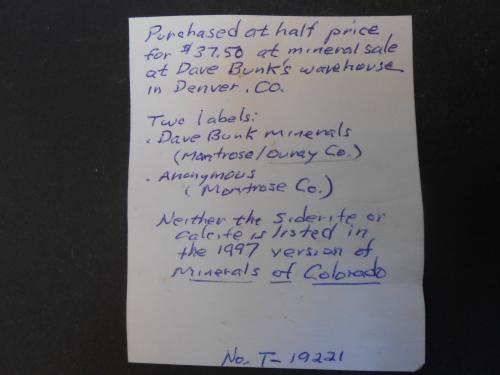 Purchased at half price
for $37.50 at mineral sale
at Dave Bunk's warehouse
in Denver, CO.
Two labels:
. Dave Bunk Minerals
(Montrose/Ouray Co.)
. Anonymous
(Montrose Co.)
Neither the Siderite or
calcite is listed in
the 1997 version of
Minerals of Colorado
No. T- 19221